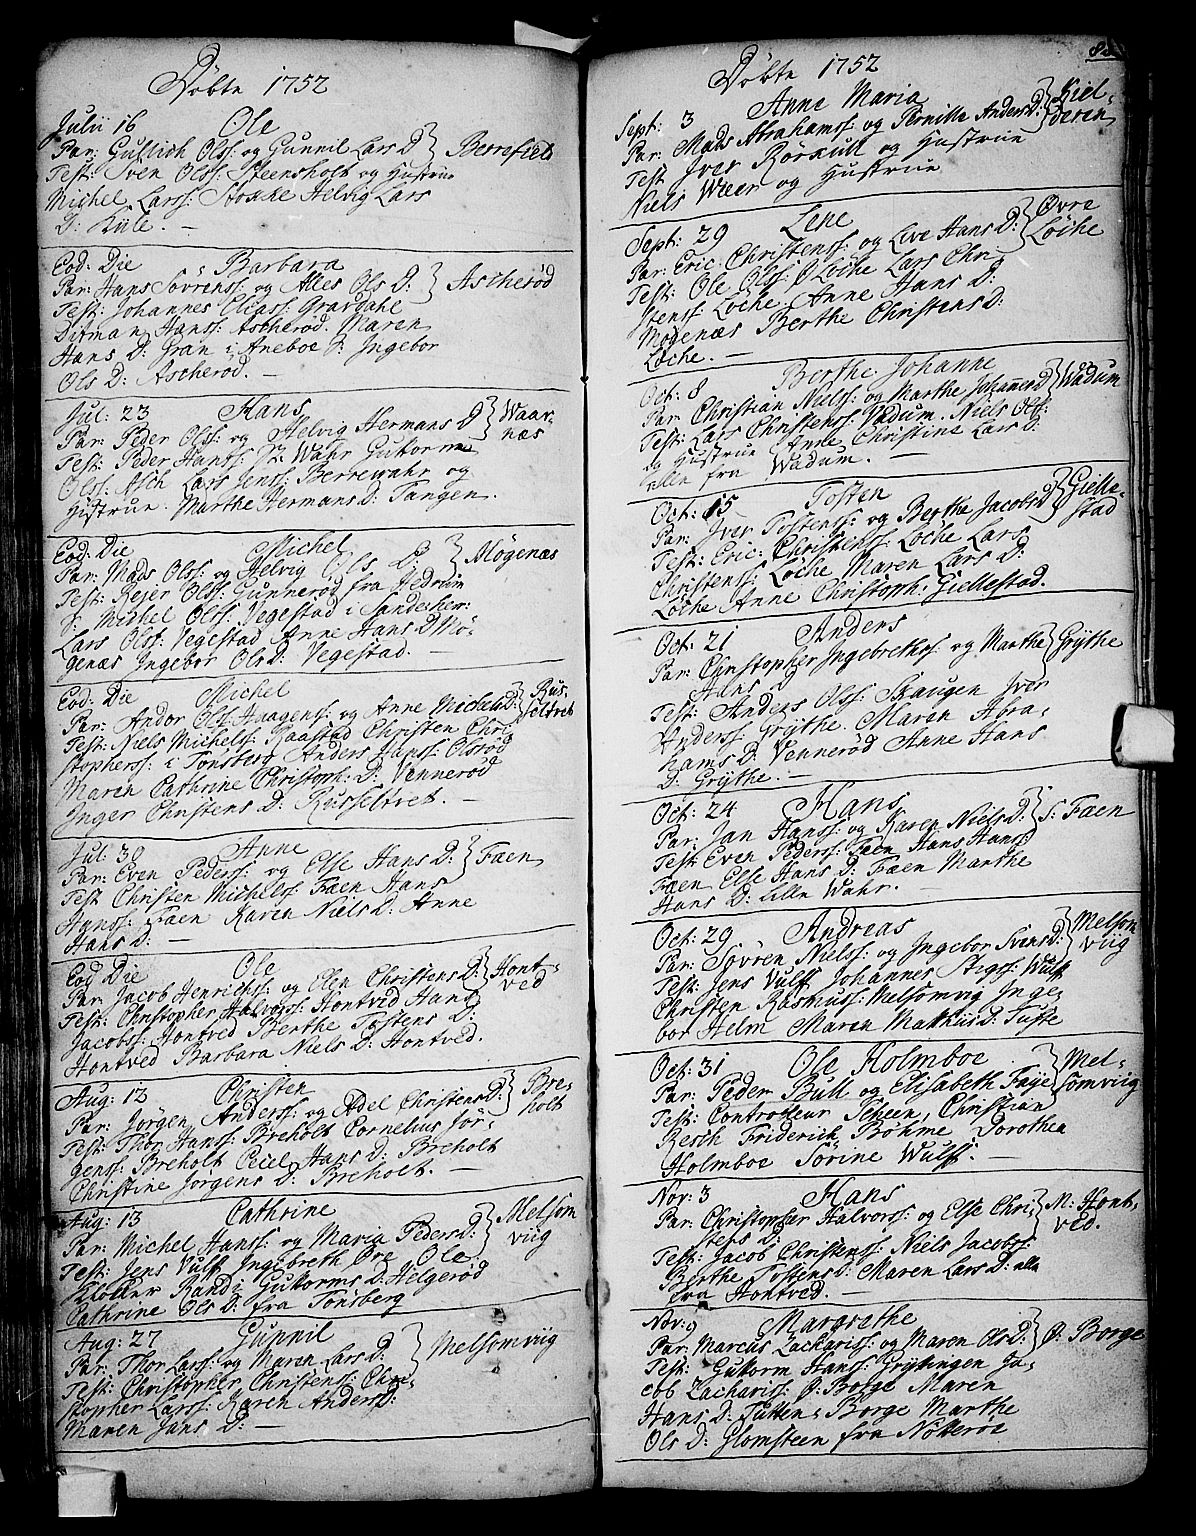 Døbte 1752
Julii 16 Ole
Par: Gullich Olss: og Gunnil Lars D
Berrefiels
Test: Sven Olss: Steensholt og Hustrue
Michel Larss: Stokke Helvig Lars
D: Kiile. —
Eod: Die Barbara
Par: Hans Sövrenss: og Alles Ols D:
Ascherød
Test: Johannes Eliass: Gravdahl
Ditman Hanss: Ascherød. Maren
Hans D: Gran i Aneboe S: Ingebor
Ols D: Ascherød. —
Jul: 23 Hans
Par: Peder Olss: og Helvig Hermans D
Waar-
næs
Test: Peder Hanss: Wahr Gutorm
Olss: Asch Lars Jenss: Berrewahr og
Hustrue. Marthe Hermans D: Tangen.
Eod: Die Michel
Par: Mads Olss: og Helvig Ols D
Møgenæs
Test: Rejer Olss: Gunnerød fra Hedrum
S: Michel Olss: Vegestad i Sandeher:
Lars Olss: Vegestad Anne Hans D Mö-
genæs Ingebor Ols D: Vegestad. —
Eod: Die Michel
Par: Andor Olss: Haagenss: og Anne Michels D:
Rus-
seltvet
Test: Niels Michelss: Raastad Christen Chri
stopherss: i Tonsberg Anders Hanss: Olsröd
Maren Cathrine Christoph: D: Vennerød
Inger Christens D: Russeltvet. —
Jul: 30 Anne
Par: Even Pederss: og Else Hans D:
Faen
Test Christen Michelss: Faen Hans
Hanss: Faen Karen Niels D: Anne
Hans D: —
Eod Die Ole
Par: Jacob Henrichss: og Elen Christens D:
Hont-
ved
Test: Christopher Halvorss: Hontved Hans
Jacobss: Hontved Berthe Tostens D:
Hontved Barbara Niels D: Hontved.
Aug: 12 Christen
Par: Jörgen Anderss: og Adel Christens D:
Bre-
holt
Test: Thor Hanss: Breholt Cornelius Jör-
genss: Breholt Cecil Hans D: Breholt
Christine Jörgens D: Breholt. —
Aug: 13 Cathrine
Par: Michel Hanss: og Maria Peders D:
Melsom
viig
Test: Jens Vulf Ingebreth Öre Ole
Klöcker Randi Guttorms D: Helgerød
Cathrine Ols D: fra Tönsberg
Aug: 27 Gunnil
Par: Thor Larss: og Maren Lars D:
Melsomviig
Test: Christopher Christenss: Chri-
stopher Larss: Karen Anders D:
Maren Jans D: —
Døbte 1752
Sept: 3 Anne Maria
Par: Mads Abrahamss: og Pernille Anders D:
Kiel-
deren
Test Iver Rörkull og Hustrue
Niels Weer og Hustrue
Sept: 29 Lene
Par: Eric Christenss: og Live Hans D:
Øvre
Løche
Test: Ole Olss: Ø Løche Lars Chri
stenss: Løche Anne Hans D:
Mögenæs Berthe Christens D:
Løche. —
Oct: 8 Berthe Johanne
Par: Christian Nielss: og Marthe Johannes D
Wadum
Test: Lars Christenss: Vadum. Niels Olss:
og Hustrue Anne Christine Lars D:
alle fra Wadum. —
Oct: 15 Tosten
Par: Iver Tostenss: og Berthe Jacobs D
Gielle-
stad
Test: Eric Christenss: Løche Lars
Christenss: Løche Maren Lars D:
Løche Anne Christoph: Giellestad.
Oct: 21 Anders
Par: Christopher Ingebrethss: og Marthe
Grÿthe
Hans D:
Test: Anders Olss: Skaugen Iver
Anderss: Grÿthe. Maren Abra-
hams D: Vennerød Anne Hans
D: Grÿthe. —
Oct: 24 Hans
Par: Jan Hanss: og Karen Niels D:
S: Faen
Test: Even Pederss: Faen Hans Hanss:
Faen Else Hans D: Faen Marthe
Hans D: Lille Wahr. —
Oct: 29 Andreas
Par: Sövren Nielss: og Ingebor Svens D:
Melsom
viig
Test: Jens Vulff Johannes Stigss: Wulf
Christen Rasmuss: Melsomvig Inge-
bor Helm Maren Mathus D: Tufte
Oct: 31 Ole Holmboe
Par: Peder Bull og Elisabeth Faÿe
Mel-
somviig
Test: Controlleur Scheen, Christian
Resch Friderich Böhme Dorothea
Holmboe Sörine Wulff. —
Nov: 3 Hans
Par: Christopher Halvorss: og Else Chri
M: Hont-
ved.
stens D:
Test: Jacob Christenss: Niels Jacobss:
Berthe Tostens D: Maren Lars D: alle
fra Hontved. —
Nov: 9 Margrethe
Par: Marcus Zachariss: og Maren Ols D:
Ø: Borge
Test: Guttorm Hanss: Grÿtingen Ja-
cob Zachariss: Ø: Borge Maren
Hans D: Tutten Borge Marthe
Ols D: Glomsteen fra Nötterøe